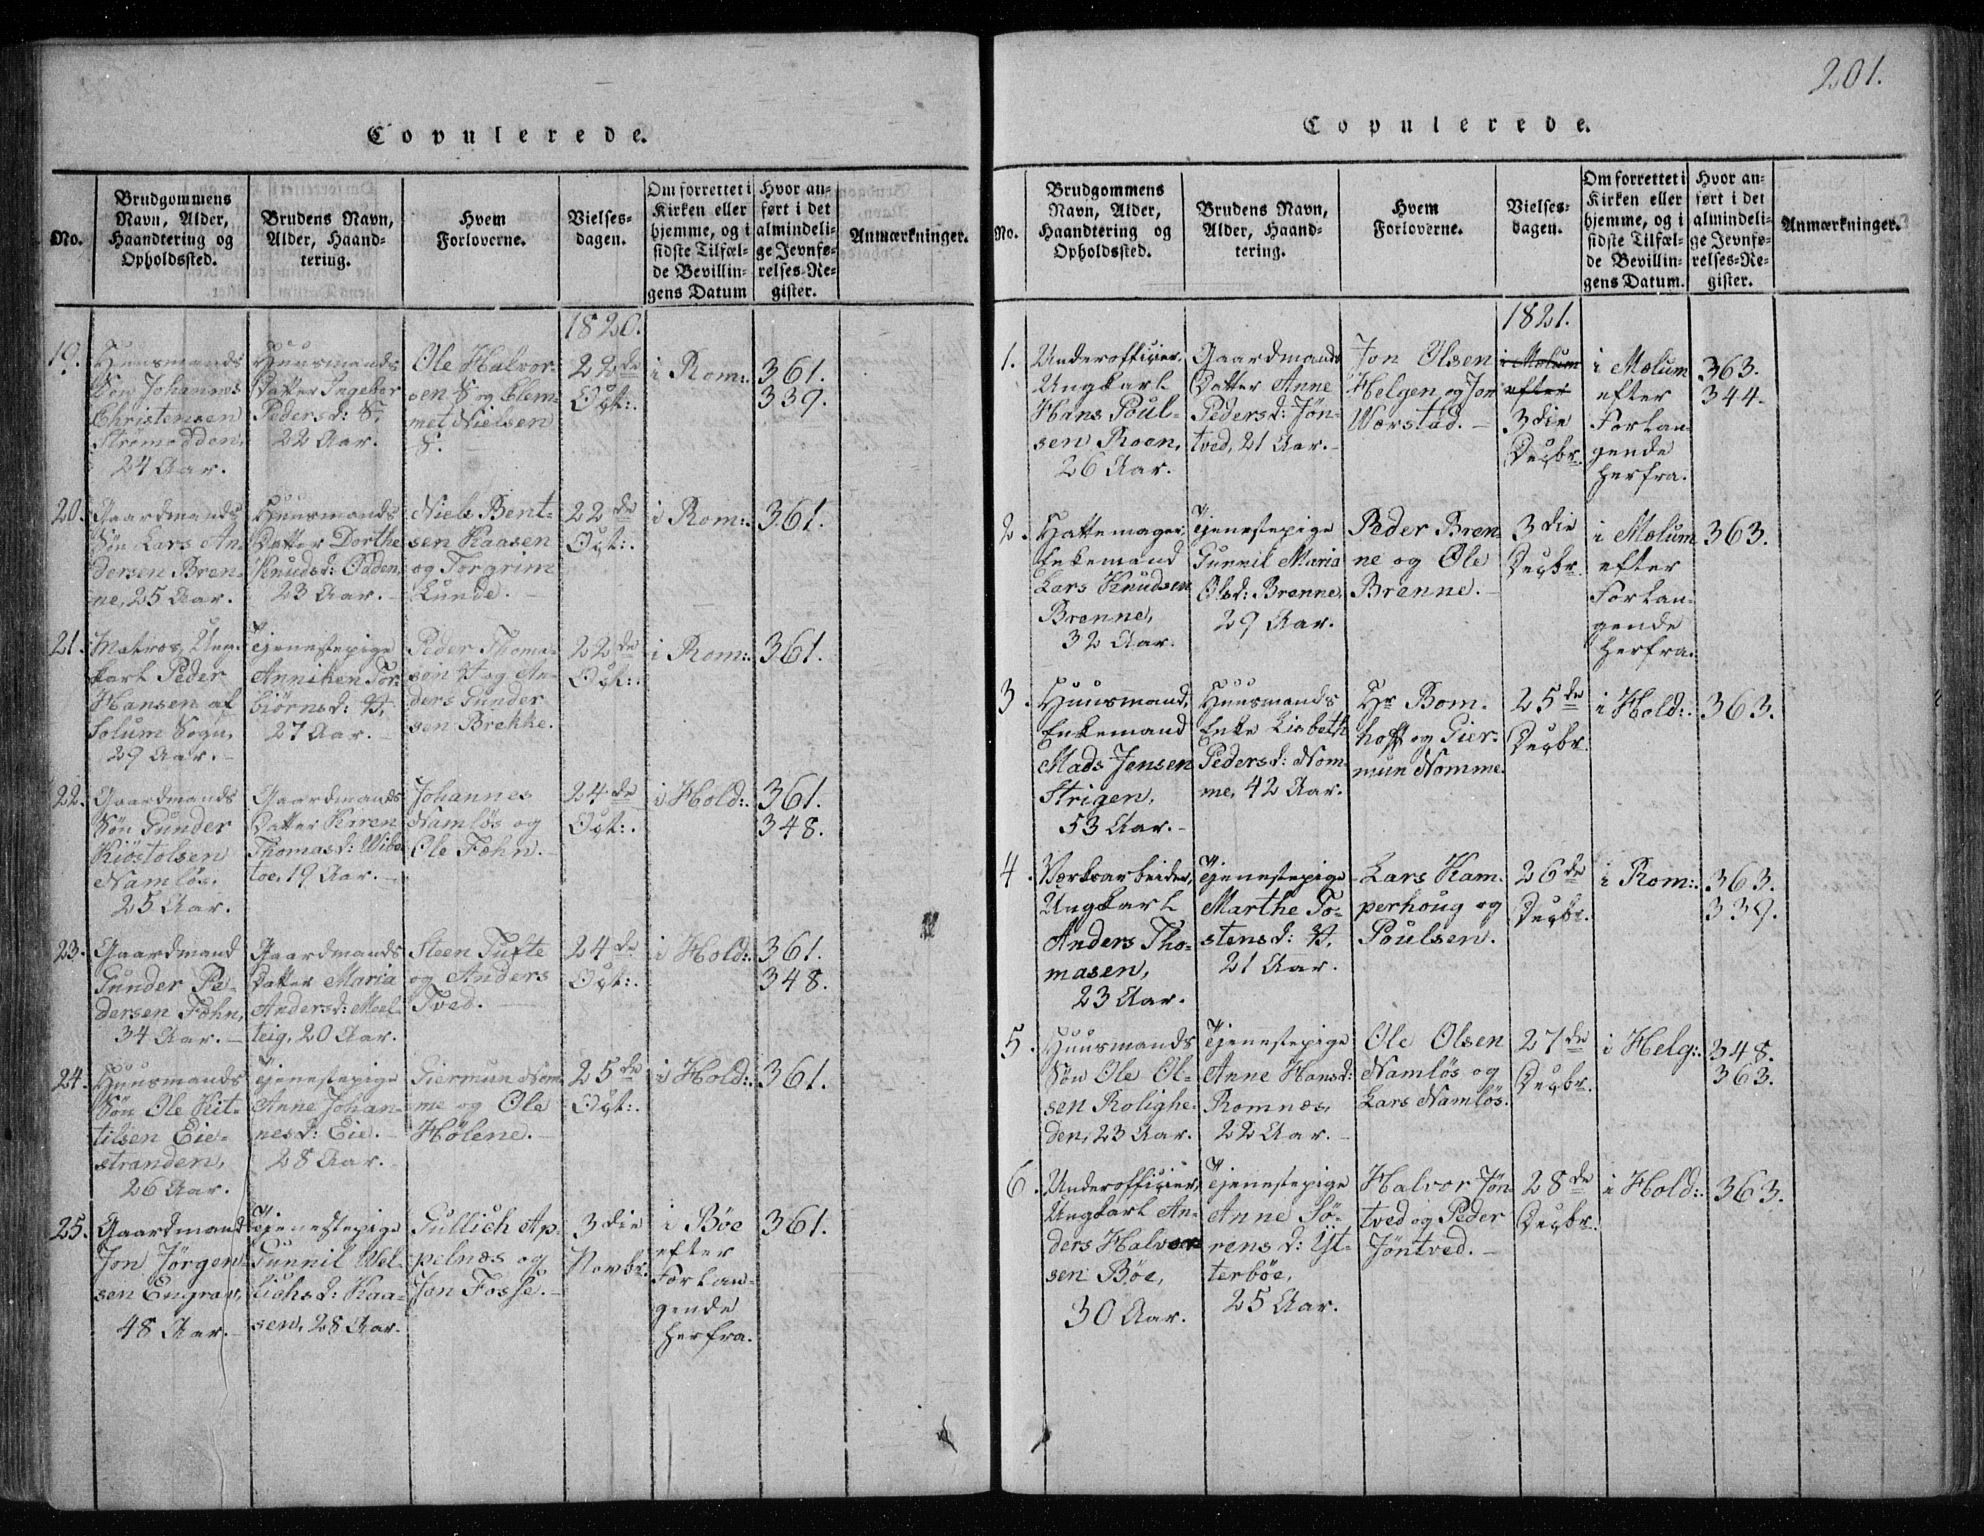 201.
Copulerede.
No.
Brudgommens Navn, Alder, Haandtering og Opholdssted.
Brudens Navn, Alder, Haandtering.
Hvem Forloverne.
Vielsesdagen.
Om forrettet i Kirken eller hjemme, og i sidste Tilfælde Bevillingens Datum
Hvor anført i det almindelige Jevnførelses-Register.
Anmærkninger.
1820.
19.
Huusmands
Søn Johannes
Christensen
Strømodden,
24 Aar.
Huusmands
Datter Ingebor
Pedersd: S.,
22 Aar.
Ole Halvor-
sen S og Clem-
met Nielsen
S.
22de
Oct:.
i Rom:.
361.
339.
20.
Gaardmands
Søn Lars An-
dersen Bren-
ne, 25 Aar.
Huusmands
Datter Dorthe
Knudsd: Odden,
23 Aar.
Niels Bent-
sen Kaasen
og Torgrim
Lunde.
22de
Oct:.
i Rom:.
361.
21.
Matros, Ung-
karl Peder
Hansen af
Solum Sogn,
29 Aar.
Tjenestepige
Anniken Tor-
biørnsd: V,
27 Aar.
Peder Thoma-
sen V og An-
ders Gunder
sen Brekke.
22de
Oct:.
i Rom:.
361.
22.
Gaardmands
Søn Gunder
Kiøstolsen
Namløs,
25 Aar.
Gaardmands
Datter Karen
Thomasd: Wibe-
toe, 19 Aar.
Johannes
Namløs og
Ole Fæhn.
24de
Oct:.
i Hold:.
361.
348.
23.
Gaardmand
Gunder Pe-
dersen Fæhn,
34 Aar.
Gaardmands
Datter Maria
Andersd: Meel-
teig, 20 Aar.
Steen Tufte
og Anders
Tved.
24de
Oct:.
i Hold:.
361.
348.
24.
Huusmands
Søn Ole Kit-
tilsen Eie-
stranden,
26 Aar.
Tjenestepige
Anne Johan-
nesd: Eie.
28 Aar.
Giermun Nom-
me og Ole
Hølene.
25de
Oct:.
i Hold:.
361.
25.
Gaardmand
Jon Jørgen-
sen Engrav,
48 Aar.
Tjenestepige
Gunnil Wel-
lichsd: Kaa-
sen, 28 Aar.
Gullich Ap-
pelnæs og
Jon Fosse.
3die
Novbr.
i Bøe
efter
Forlan-
gende
herfra.
361.
Copulerede.
No.
Brudgommens Navn, Alder, Haandtering og Opholdssted.
Brudens Navn, Alder, Haandtering.
Hvem Forloverne.
Vielsesdagen.
Om forrettet i Kirken eller hjemme, og i sidste Tilfælde Bevillingens Datum.
Hvor anført i det almindelige Jevnførelses-Register.
Anmærkninger.
1821.
1.
Underofficier,
Ungkarl
Hans Poul-
sen Roen,
26 Aar.
Gaardmands
Datter Anne
Pedersd: Jøn-
tved, 21 Aar.
Jon Olsen
Helgen og Jon
Wærstad.
i Mælum
efter
3die
Decbr.
i Mælum
efter
Forlan-
gende
herfra.
363.
344.
2.
Hattemager,
Enkemand
Lars Knudsen
Brenne,
32 Aar.
Tjenestepige
Gunnil Maria
Olsd: Brenne,
29 Aar.
Peder Bren-
ne og Ole
Brenne.
3die
Decbr.
i Mælum
efter
Forlan-
gende
herfra.
363.
3.
Huusmand,
Enkemand
Mads Jensen
Strigen,
53 Aar.
Huusmands
Enke Lisbeth
Pedersd: Nom-
me, 42 Aar.
Hr Bom-
hoff og Gier-
mun Nomme.
25de
Decbr.
i Hold:.
363.
4.
Værksarbeider,
Ungkarl
Anders Tho-
masen,
23 Aar.
Tjenestepige
Marthe To-
stensd: V,
21 Aar.
Lars Kam-
perhoug og
Poulsen.
26de
Decbr.
i Rom:.
363.
339.
5.
Huusmands
Søn Ole Ol-
sen Rolighe-
den, 23 Aar.
Tjenestepige
Anne Hansd:
Romnæs,
22 Aar.
Ole Olsen
Namløs og
Lars Namløs.
27de
Decbr.
i Helg:.
348.
363.
6.
Underofficier,
Ungkarl An-
ders Halvor-
sen Bøe,
30 Aar.
Tjenestepige
Anne Sø-
rens d: Yt-
terbøe,
25 Aar.
Halvor Jøn-
tved og Peder
Jøntved.
28de
Decbr.
i Hold:.
363.